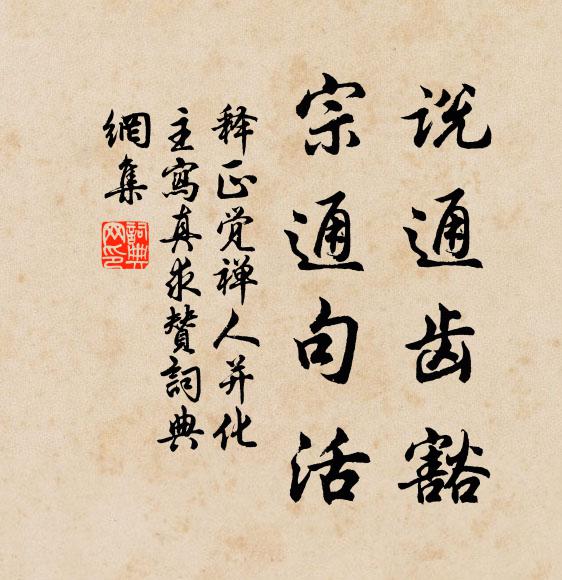 说通齿豁
宗通句活
释正觉禅人并化
主寫真求赞詞典
網集
詞典网印